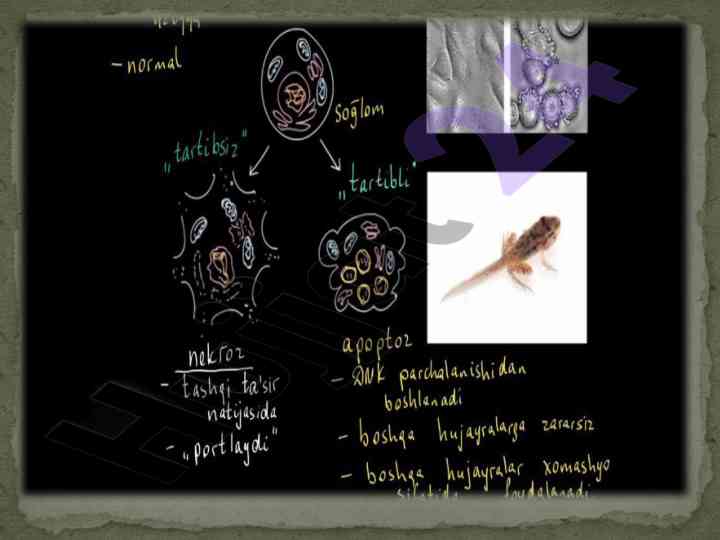 – normal
sog̃lom
„tartibsiz"
„tartibli"
nekroz
– tashqi ta'sir
natijasida
– „portlaydi"
apoptoz
– DNK parchalanishidan
boshlanadi
– boshqa hujayralarga zararsiz
– boshqa hujayralar xomashyo
sifatida foydalanadi